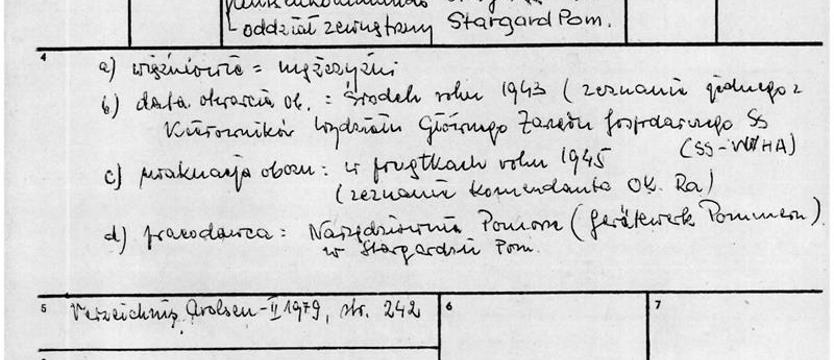 - oddział zewnętrzny Stargard Pom.
4
a) więźniowie = mężczyźni
b) data otwarcia ob. : środek roku 1943 (zeznania jednego z
Kierowników Wydziału Głównego Zarządu Gospodarczego SS
(SS-WVHA)
c) ewakuacja obozu : w początkach roku 1945
(zeznania komendanta OK. Ra)
d) pracodawca : Narzędziownia Pomorze (Gerätewerk Pommern)
w Stargardzie Pom.
5 Verzeichnis Arolsen - II 1979, str. 242
6
7